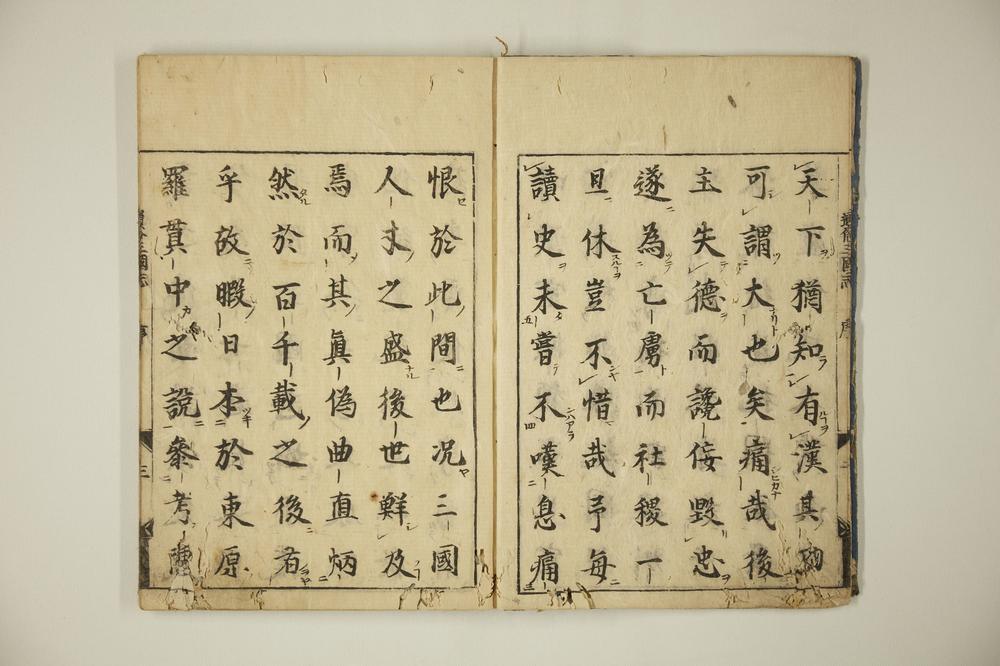 天下猶知有漢其功
可謂大也矣痛哉後
主失德而讒侫毀忠
遂為亡虜而社稷一
旦休豈不惜哉予每
讀史未嘗不嘆息痛
恨於此間也况三國
人才之盛後世鮮及
焉而其眞偽曲直炳
然於百千載之後者
乎故暇日本於東原
羅貫中之說參考陳